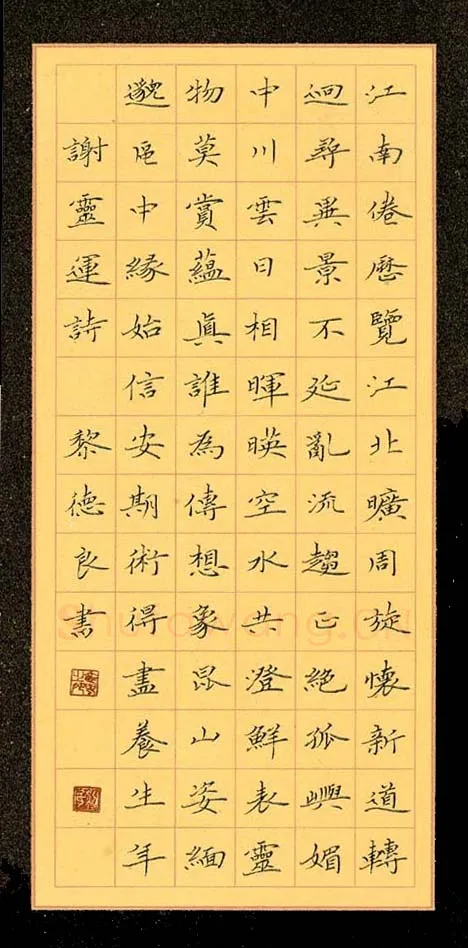 江南倦歷覽江北曠周旋懷新道轉
逈尋異景不延亂流趨正絕孤嶼媚
中川雲日相暉暎空水共澄鮮表靈
物莫賞蘊眞誰為傳想象昆山姿緬
邈區中緣始信安期術得盡養生年
謝靈運詩 黎德良書